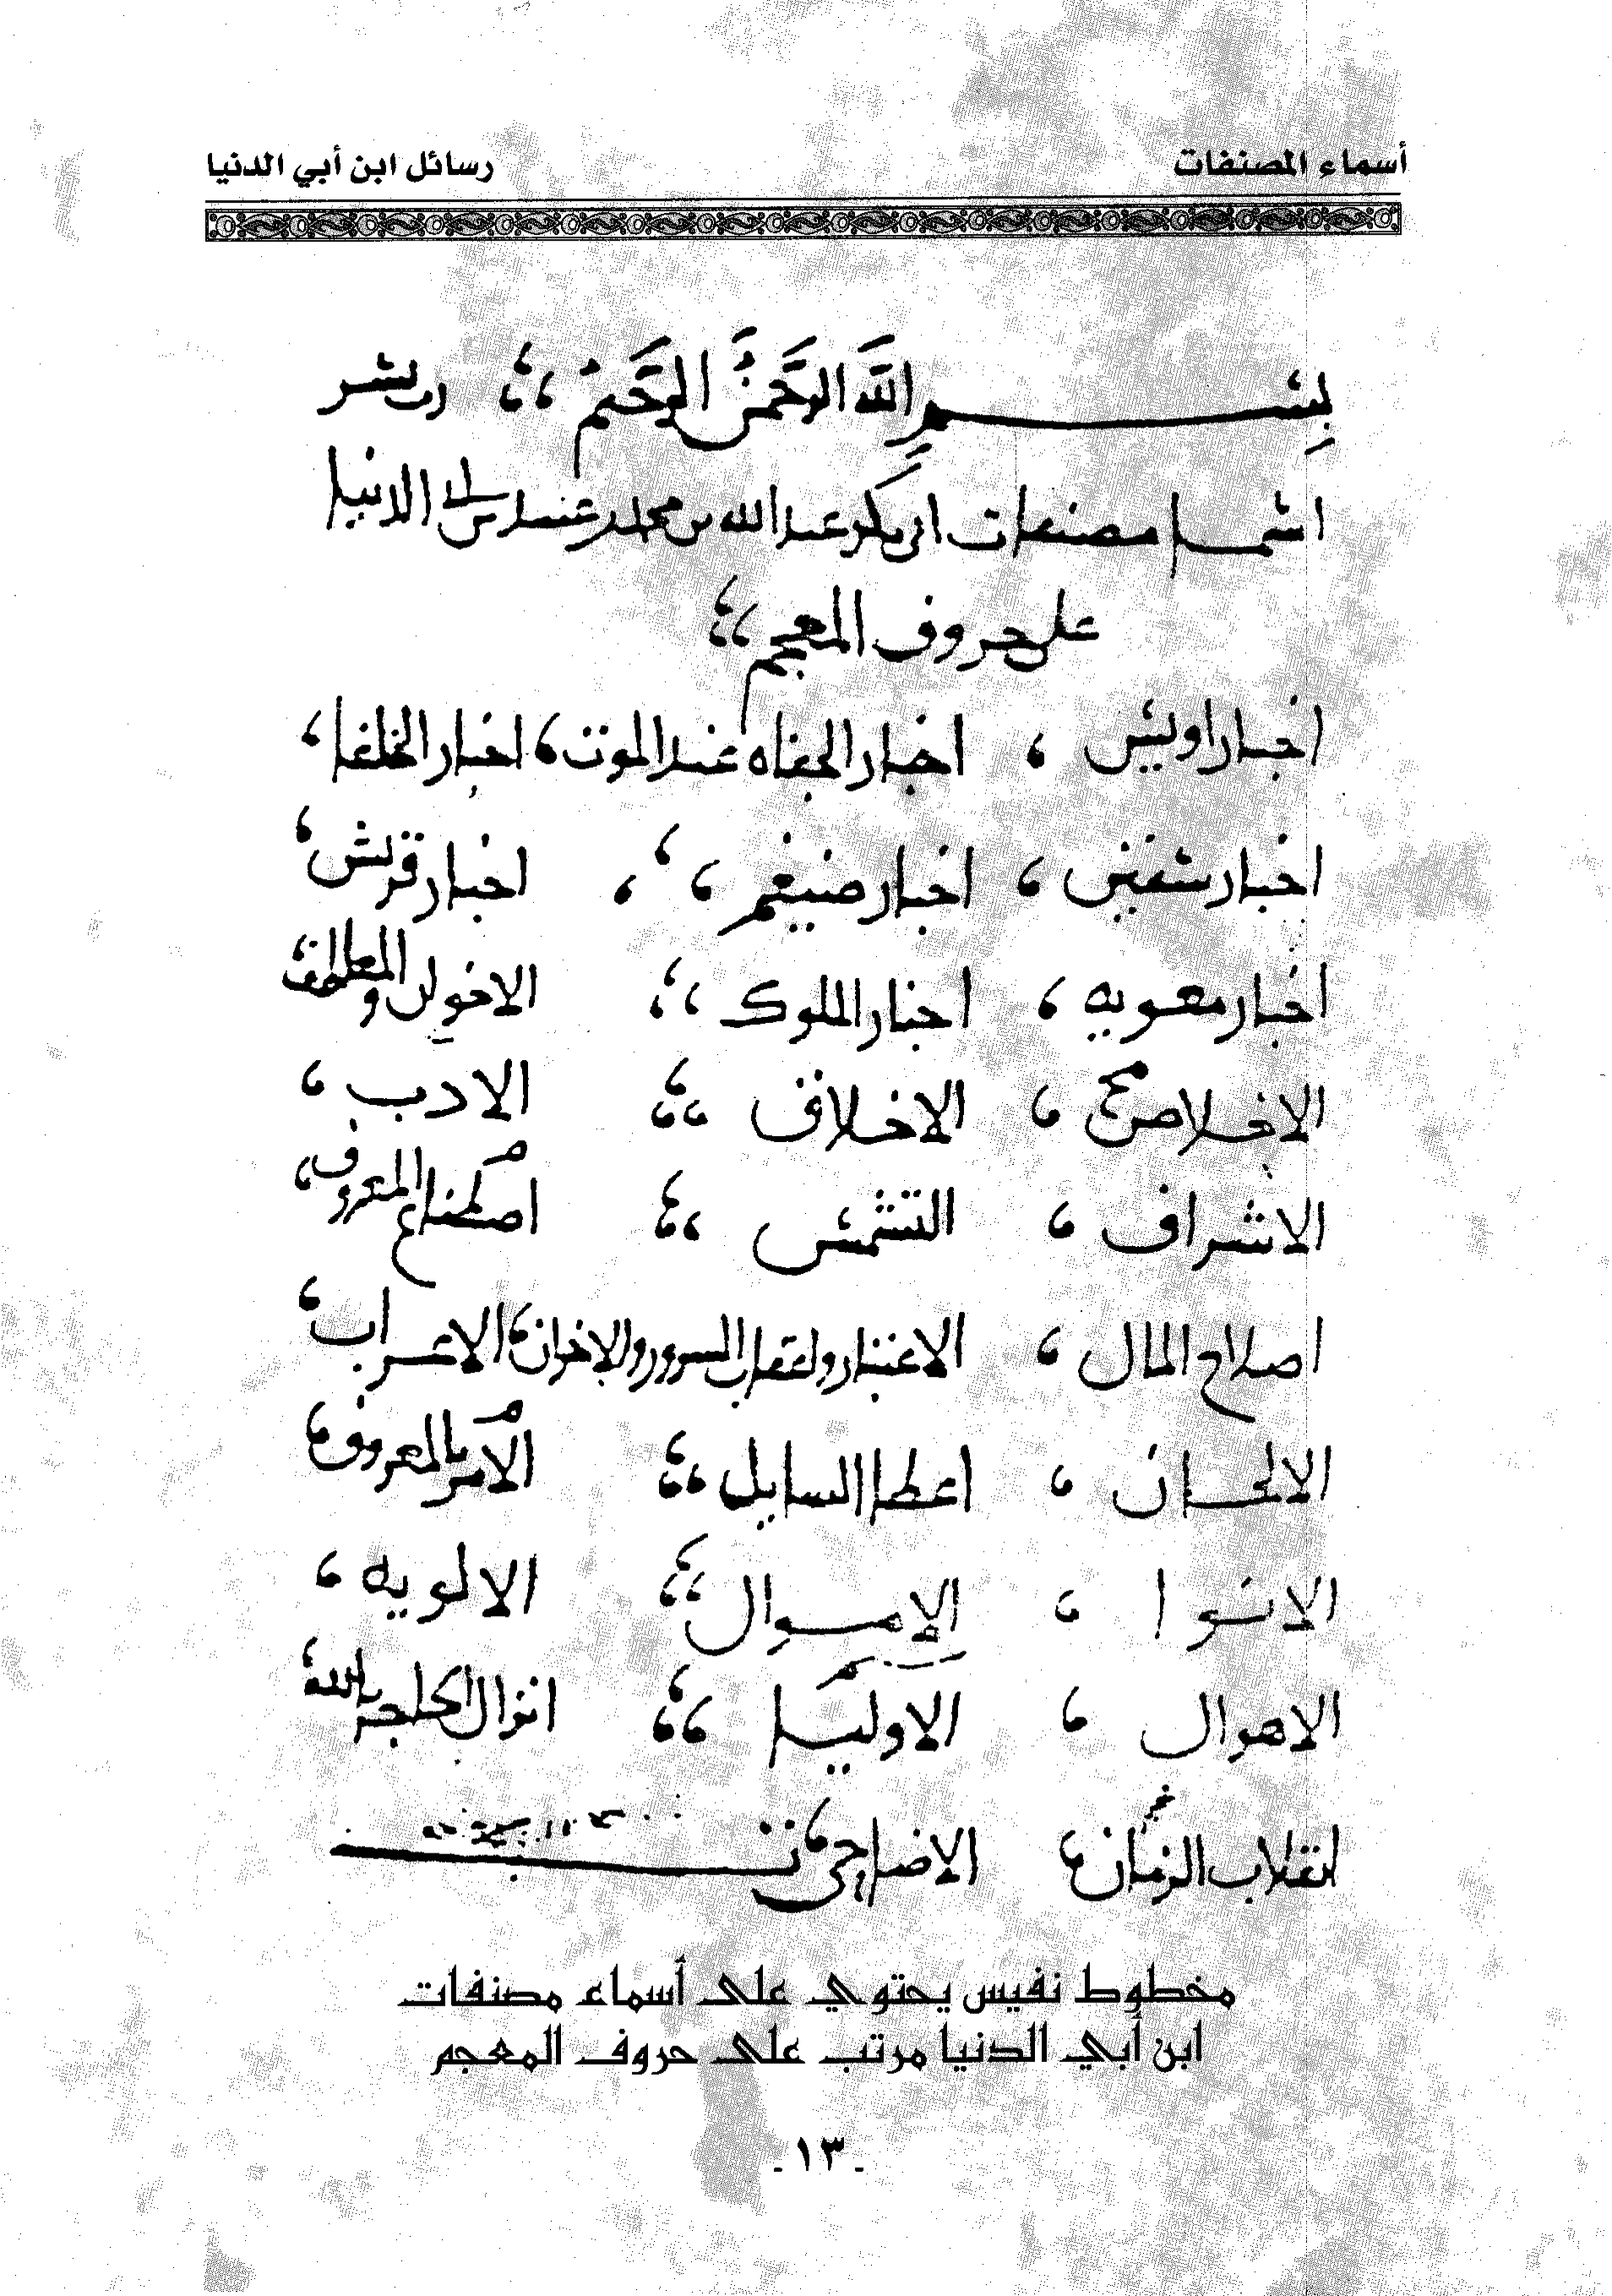 أسماء المصنفات رسائل ابن أبي الدنيا
بسم الله الرحمن الرحيم رب يسر
اسما مصنفات ابى بكر عبد الله بن محمد بن عبيد بن ابى الدنيا
على حروف المعجم
اخبار اويس ، اخبار الجفاه عند الموت ، اخبار الخلفا ،
اخبار ضيغم ، ، اخبار قريش ،
اخبار معويه ، اخبار الملوك ،، الاخوان
الاخلاص ، الاخلاق ،، الادب ،
الاشراف ، اصطناع المعروف ،
اصلاح المال ، الاعتبار واعقاب السرور والاخوان ، الاعراب ،
الالحان ، اعطا السايل ،، الامر بالمعروف ،
الانوا ، الاموال ،، الالويه ،
الاهوال ، الاوليا ،، بالله
انقلاب الزمان ، الاضاحى ،
مخطوط نفيس يحتوي على أسماء مصنفات
ابن أبي الدنيا مرتب على حروف المعجم
- ١٣ -